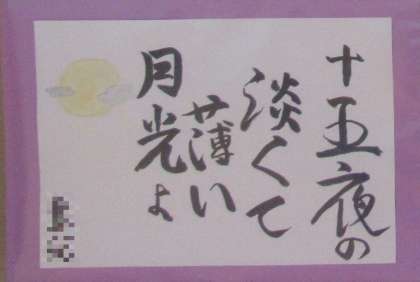 十五夜の
淡くて
薄い
月光よ